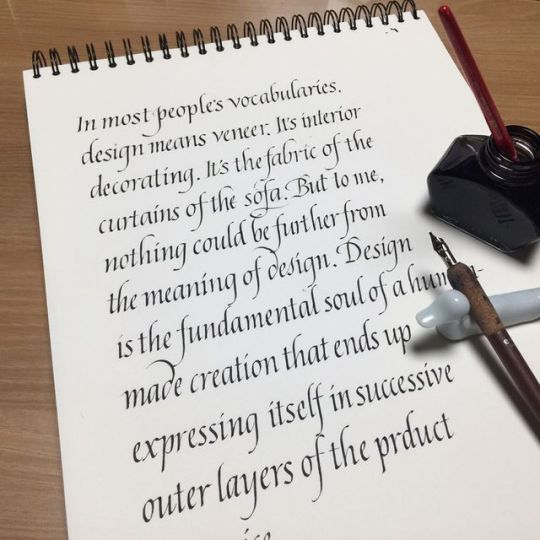 In most people's vocabularies.
design means veneer. It's interior
decorating. It's the fabric of the
curtains of the sofa. But to me,
nothing could be further from
the meaning of design. Design
is the fundamental soul of a
made creation that ends up
expressing itself in successive
outer layers of the prduct